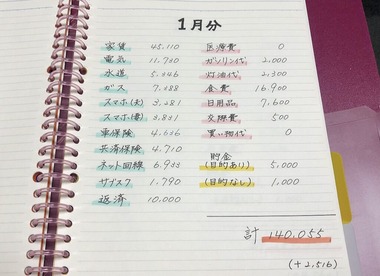 1月分
家賃 45,110
電気 11,730
水道 5,346
ガス 7,388
スマホ(夫) 3,281
スマホ(妻) 3,831
車保険 4,636
共済保険 4,710
ネット回線 6,933
サブスク 1,790
返済 10,000
医療費 0
ガソリン代 2,000
灯油代 2,300
食費 16,900
日用品 7,600
交際費 500
買い物代 0
貯金
(目的あり) 5,000
(目的なし) 1,000
計 140,055
(+2,516)